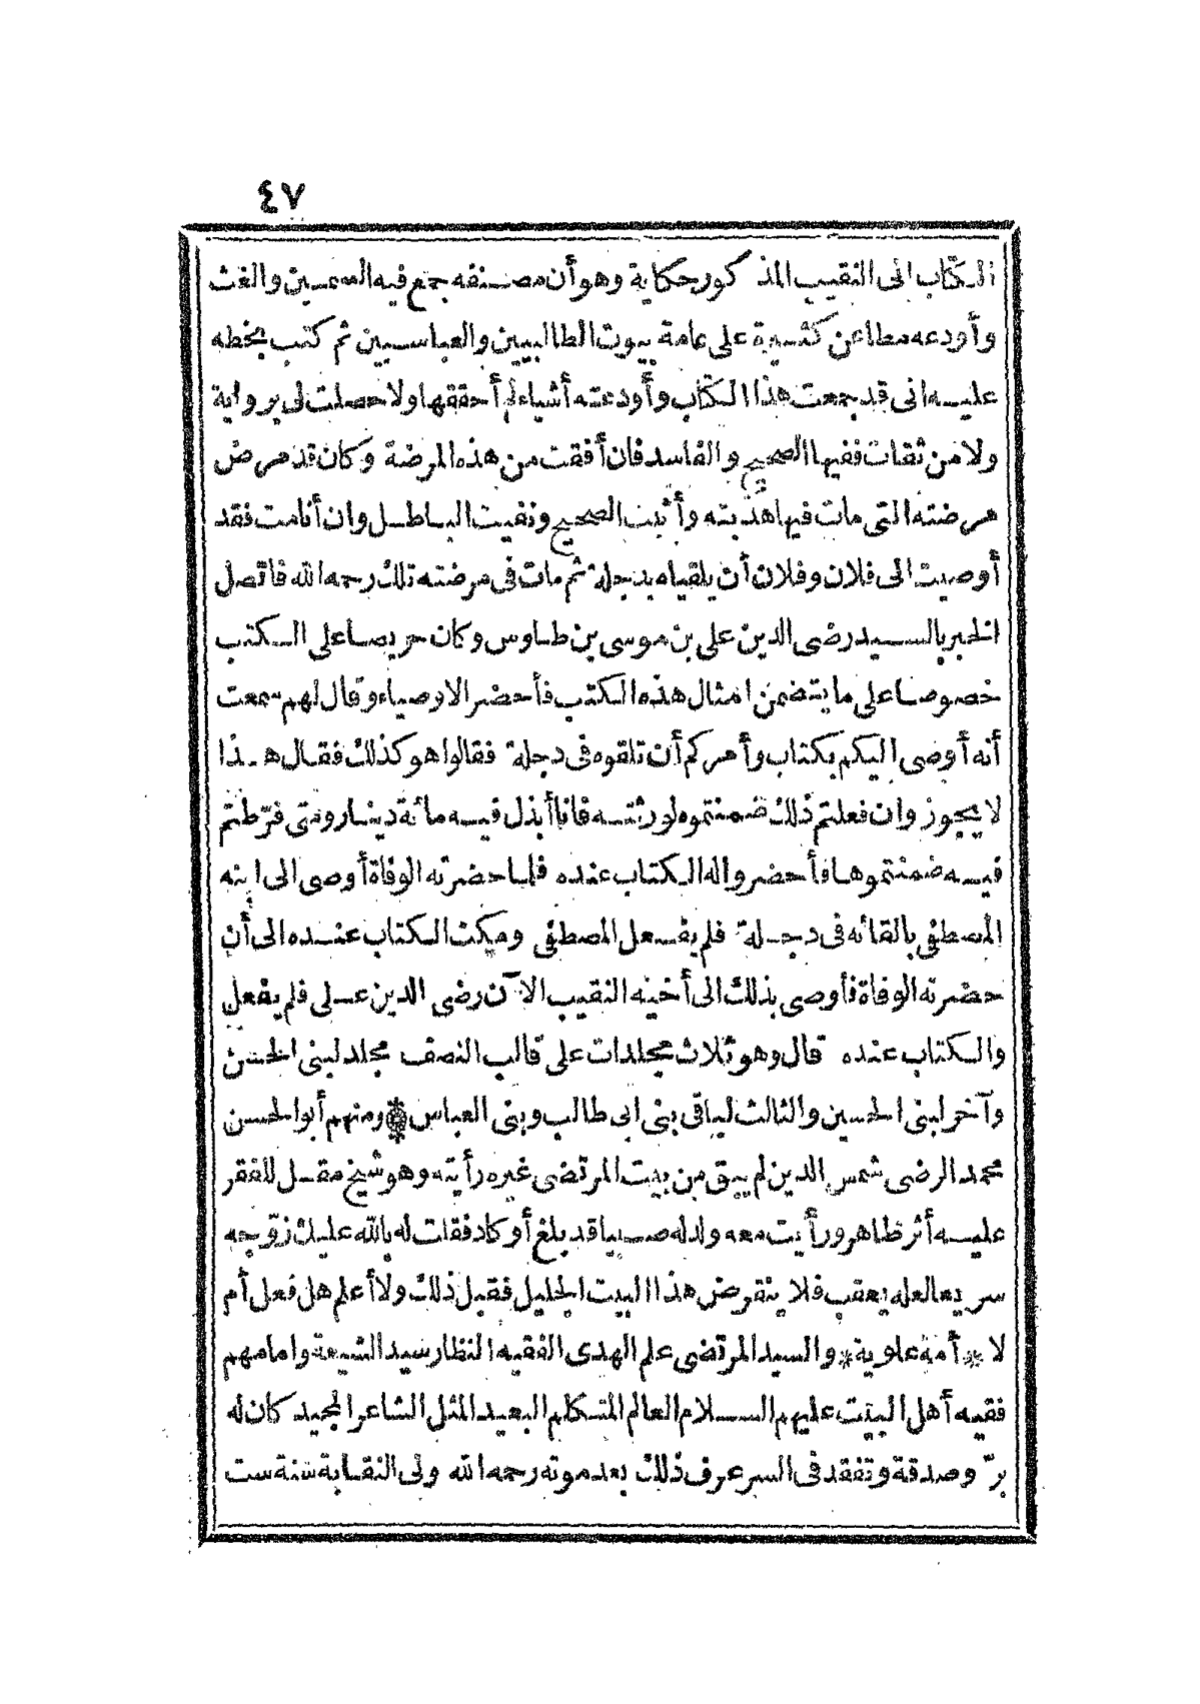 ٤٧
الكتاب الى النقيب المذكور حكاية وهو أن مصنفه جمع فيه السمين والغث
وأودعه مطاعن كثيرة على عامة بيوت الطالبيين والعباسيين ثم كتب بخطه
عليه انى قد جمعت هذا الكتاب وأودعته أشياء لم أحققها ولا حصلت لى برواية
ولا من ثقات ففيها الصحيح والفاسد فان أفقت من هذه المرضة وكان قد مرض
مرضته التى مات فيها هذبته وأثبت الصحيح ونفيت الباطل وان أنا مت فقد
أوصيت الى فلان وفلان أن يلقياه بدجلة ثم مات فى مرضته تلك رحمه الله فاتصل
الخبر بالسيد رضى الدين على بن موسى بن طاوس وكان حريصا على الكتب
خصوصا على ما يتضمن امثال هذه الكتب فأحضر الاوصياء وقال لهم سمعت
أنه أوصى اليكم بكتاب وأمركم أن تلقوه فى دجلة فقالوا هو كذلك فقال هذا
لا يجوز وان فعلتم ذلك ضمنتموه لورثته فانا أبذل فيه مائة دينار ومتى فرّطتم
فيه ضمنتموها فأحضروا له الكتاب عنده فلما حضرته الوفاة أوصى الى ابنه
المصطفى بالقائه فى دجلة فلم يفعل المصطفى ومكث الكتاب عنده الى أن
حضرته الوفاة فأوصى بذلك الى أخيه النقيب الآن رضى الدين على فلم يفعل
والكتاب عنده قال وهو ثلاث مجلدات على قالب النصف مجلد لبنى الحسن
وآخر لبنى الحسين والثالث لباقى بنى ابى طالب وبنى العباس * ومنهم أبو الحسن
محمد الرضى شمس الدين لم يبق من بيت المرتضى غيره رأيته وهو شيخ مقل للفقر
عليه أثر ظاهر ورأيت معه ولدا له صبيا قد بلغ أو كاد فقلت له بالله عليك زوّجه
سريعا لعله يعقب فلا ينقرض هذا البيت الجليل فقبل ذلك ولا أعلم هل فعل أم
لا * أمة علوية * والسيد المرتضى علم الهدى الفقيه النظار سيد الشيعة وامامهم
فقيه أهل البيت عليهم السلام العالم المتكلم البعيد المثل الشاعر المجيد كان له
برّ وصدقة وتفقد فى السر عرف ذلك بعد موته رحمه الله ولى النقابة سنة ست